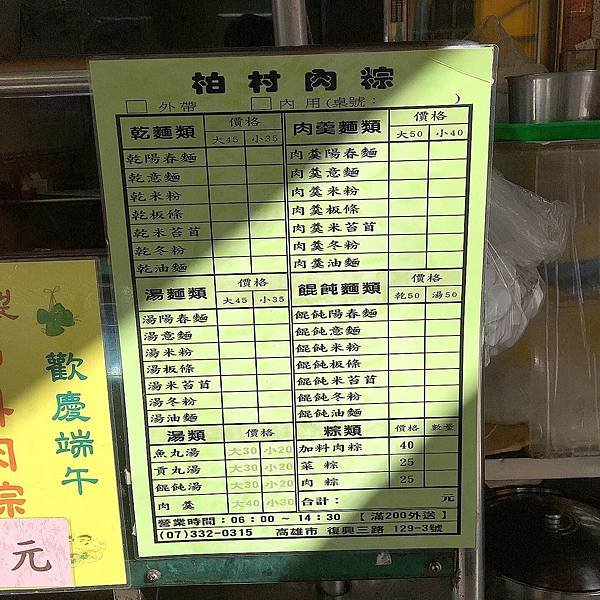 柏村肉粽
外帶 內用(桌號： )
乾麵類 價格
大45 小35
乾陽春麵
乾意麵
乾米粉
乾板條
乾米苔目
乾冬粉
乾油麵
肉羹麵類 價格
大50 小40
肉羹陽春麵
肉羹意麵
肉羹米粉
肉羹板條
肉羹米苔目
肉羹冬粉
肉羹油麵
湯麵類 價格
大45 小35
湯陽春麵
湯意麵
湯米粉
湯板條
湯米苔目
湯冬粉
湯油麵
餛飩麵類 價格
乾50 湯50
餛飩陽春麵
餛飩意麵
餛飩米粉
餛飩板條
餛飩米苔目
餛飩冬粉
餛飩油麵
湯類 價格
魚丸湯 大30 小20
貢丸湯 大30 小20
餛飩湯 大30 小20
肉羹 大40 小30
粽類 價格 數量
加料肉粽 40
菜粽 25
肉粽 25
合計： 元
營業時間：06：00 ~ 14：30 【滿200外送】
(07)332-0315 高雄市 復興三路 129-3號
歡慶端午
製
料肉粽
元